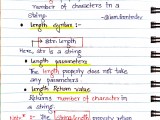 number of characters in a
string.
• Length syntax :-
str.length
Here, str is a string
• Length parameters
The length property does not take
any parameters.
• Length Return Value
Returns number of character in
a string.
Note* :- The length property